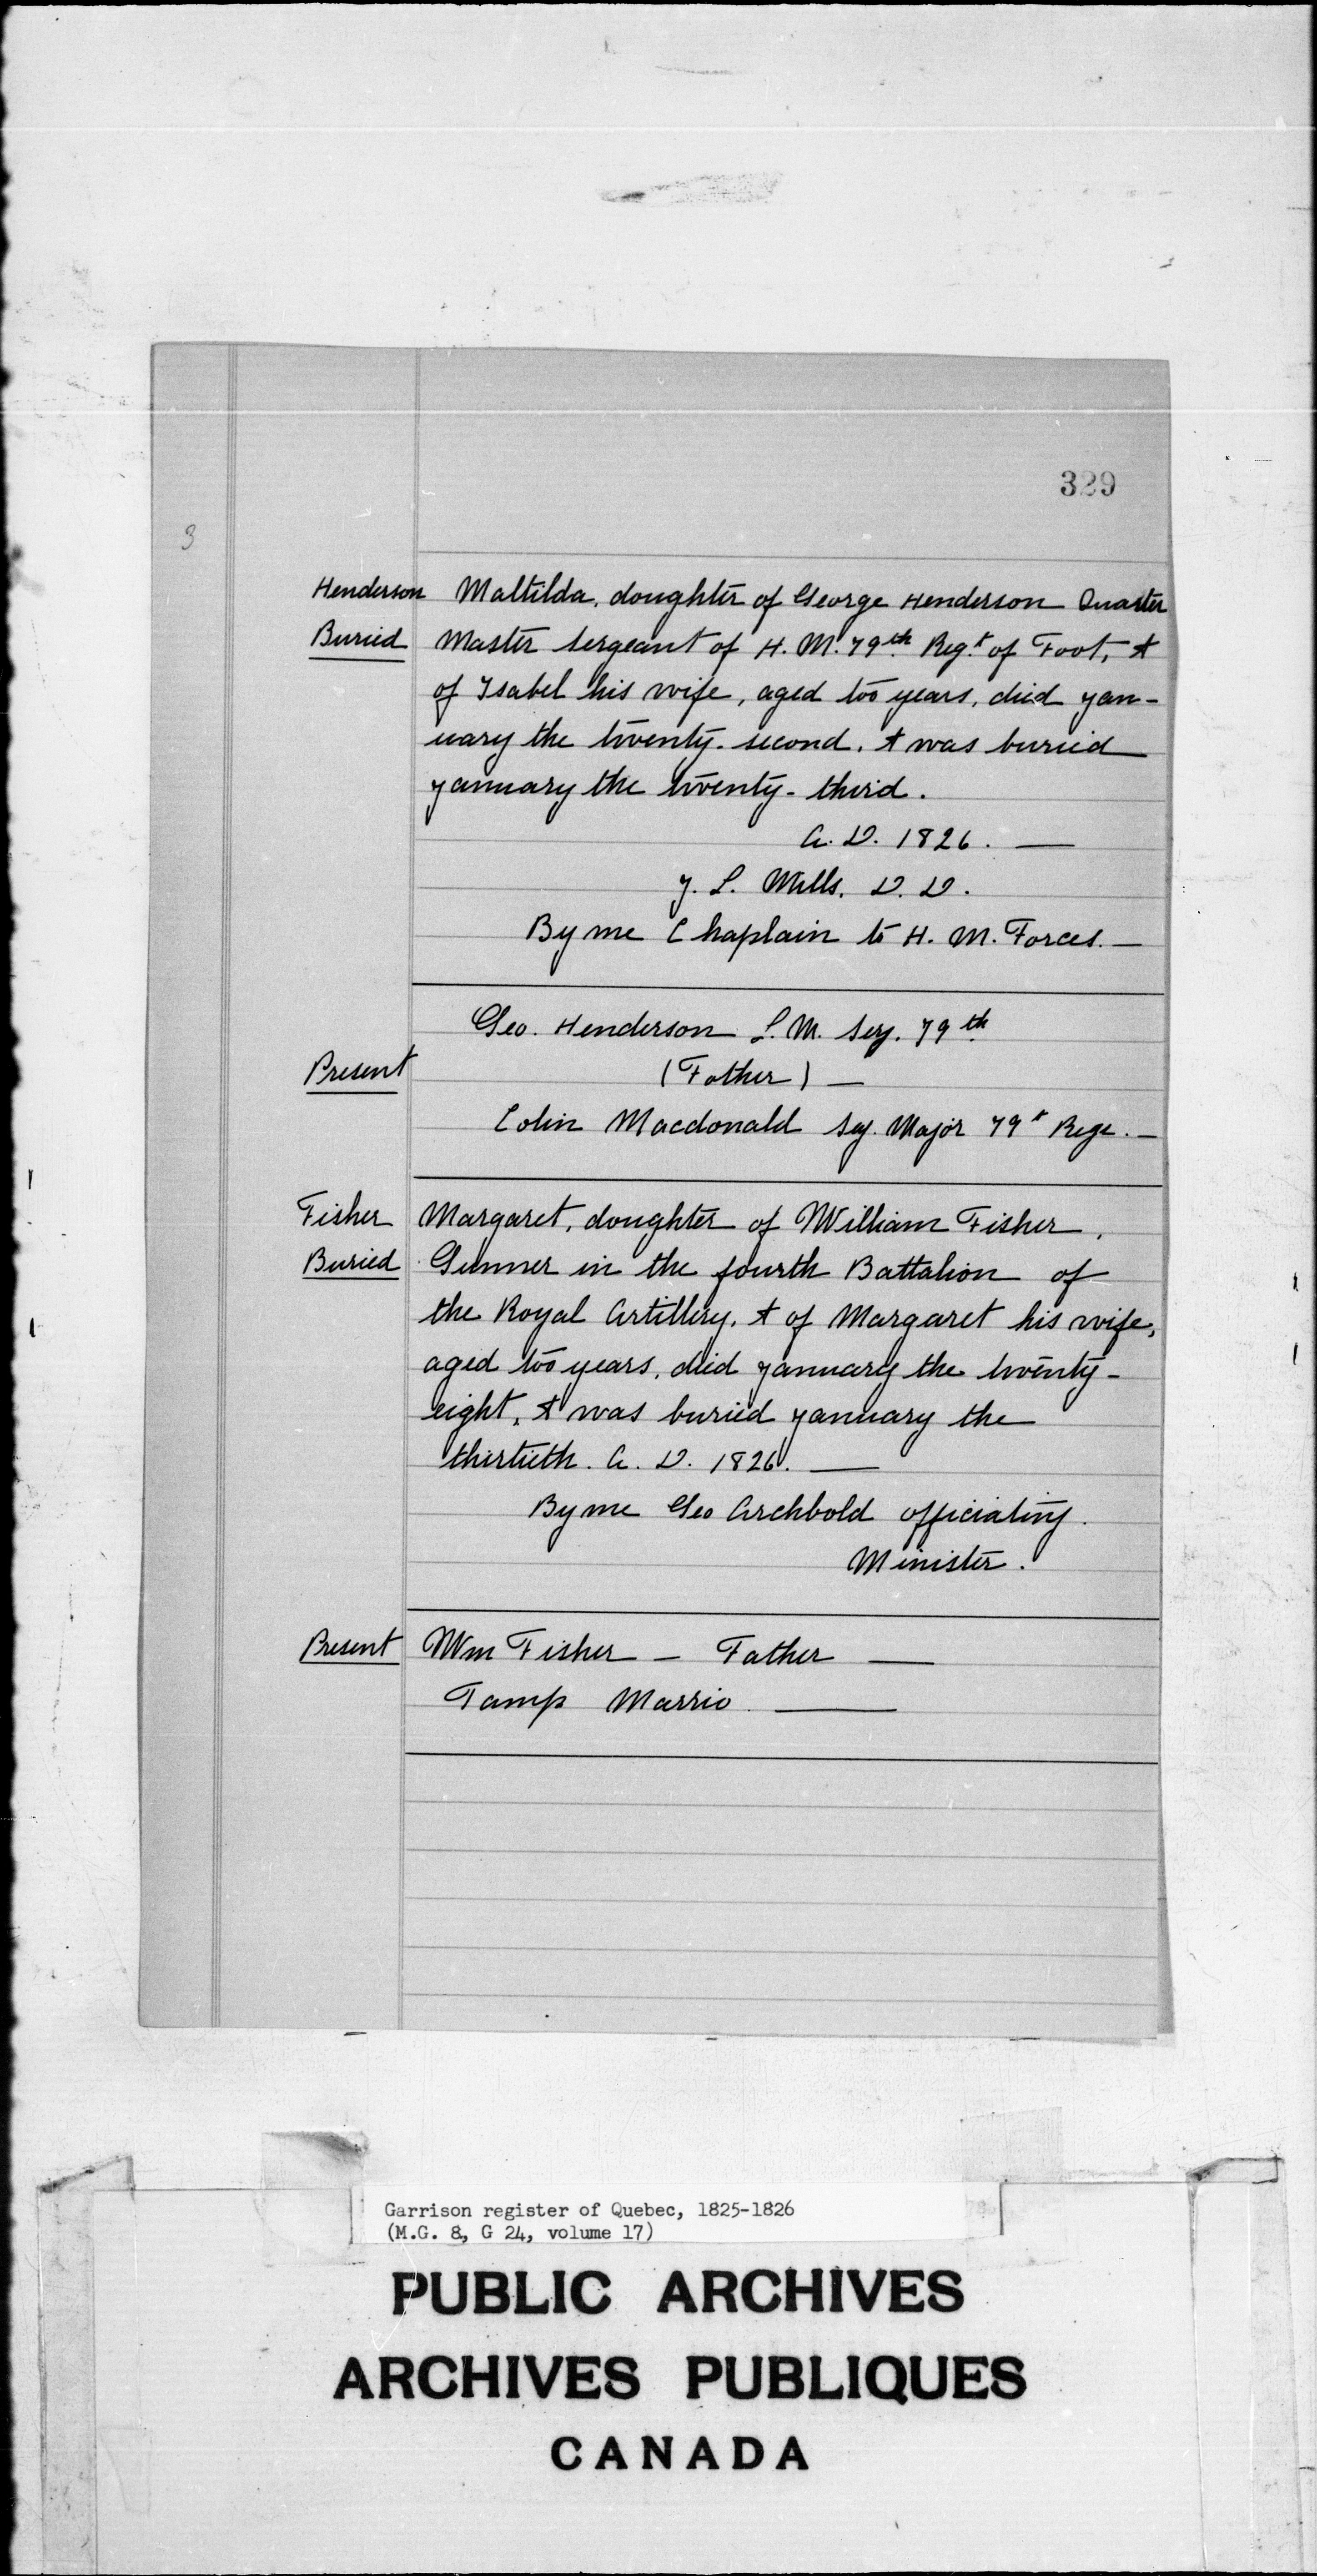 329
3
Henderson Maltilda, doughter of George Henderson Quarter
Buried Master Sergeant of H. M. 79th Regt of Foot, &
of Isabel his wife, aged too years, died Jan-
uary the twenty-second, & was buried
January the twenty-third.
A. D. 1826. —
J. L. Mills. D. D.
By me Chaplain to H. M. Forces. —
Geo. Henderson L. M. Serj. 79th
Present (Father) —
Colin Macdonald Serj. Major 79t Rege. —
Fisher Margaret, doughter of William Fisher,
Buried Gunner in the fourth Battalion of
the Royal Artillery, & of Margaret his wife,
aged too years, died January the twenty-
eight, & was buried January the
thirtieth. A. D. 1826. —
By me Geo Archbold officiating.
Minister.
Present Wm Fisher — Father —
Tamp Marrio. —
Garrison register of Quebec, 1825-1826
(M.G. 8, G 24, volume 17)
PUBLIC ARCHIVES
ARCHIVES PUBLIQUES
CANADA